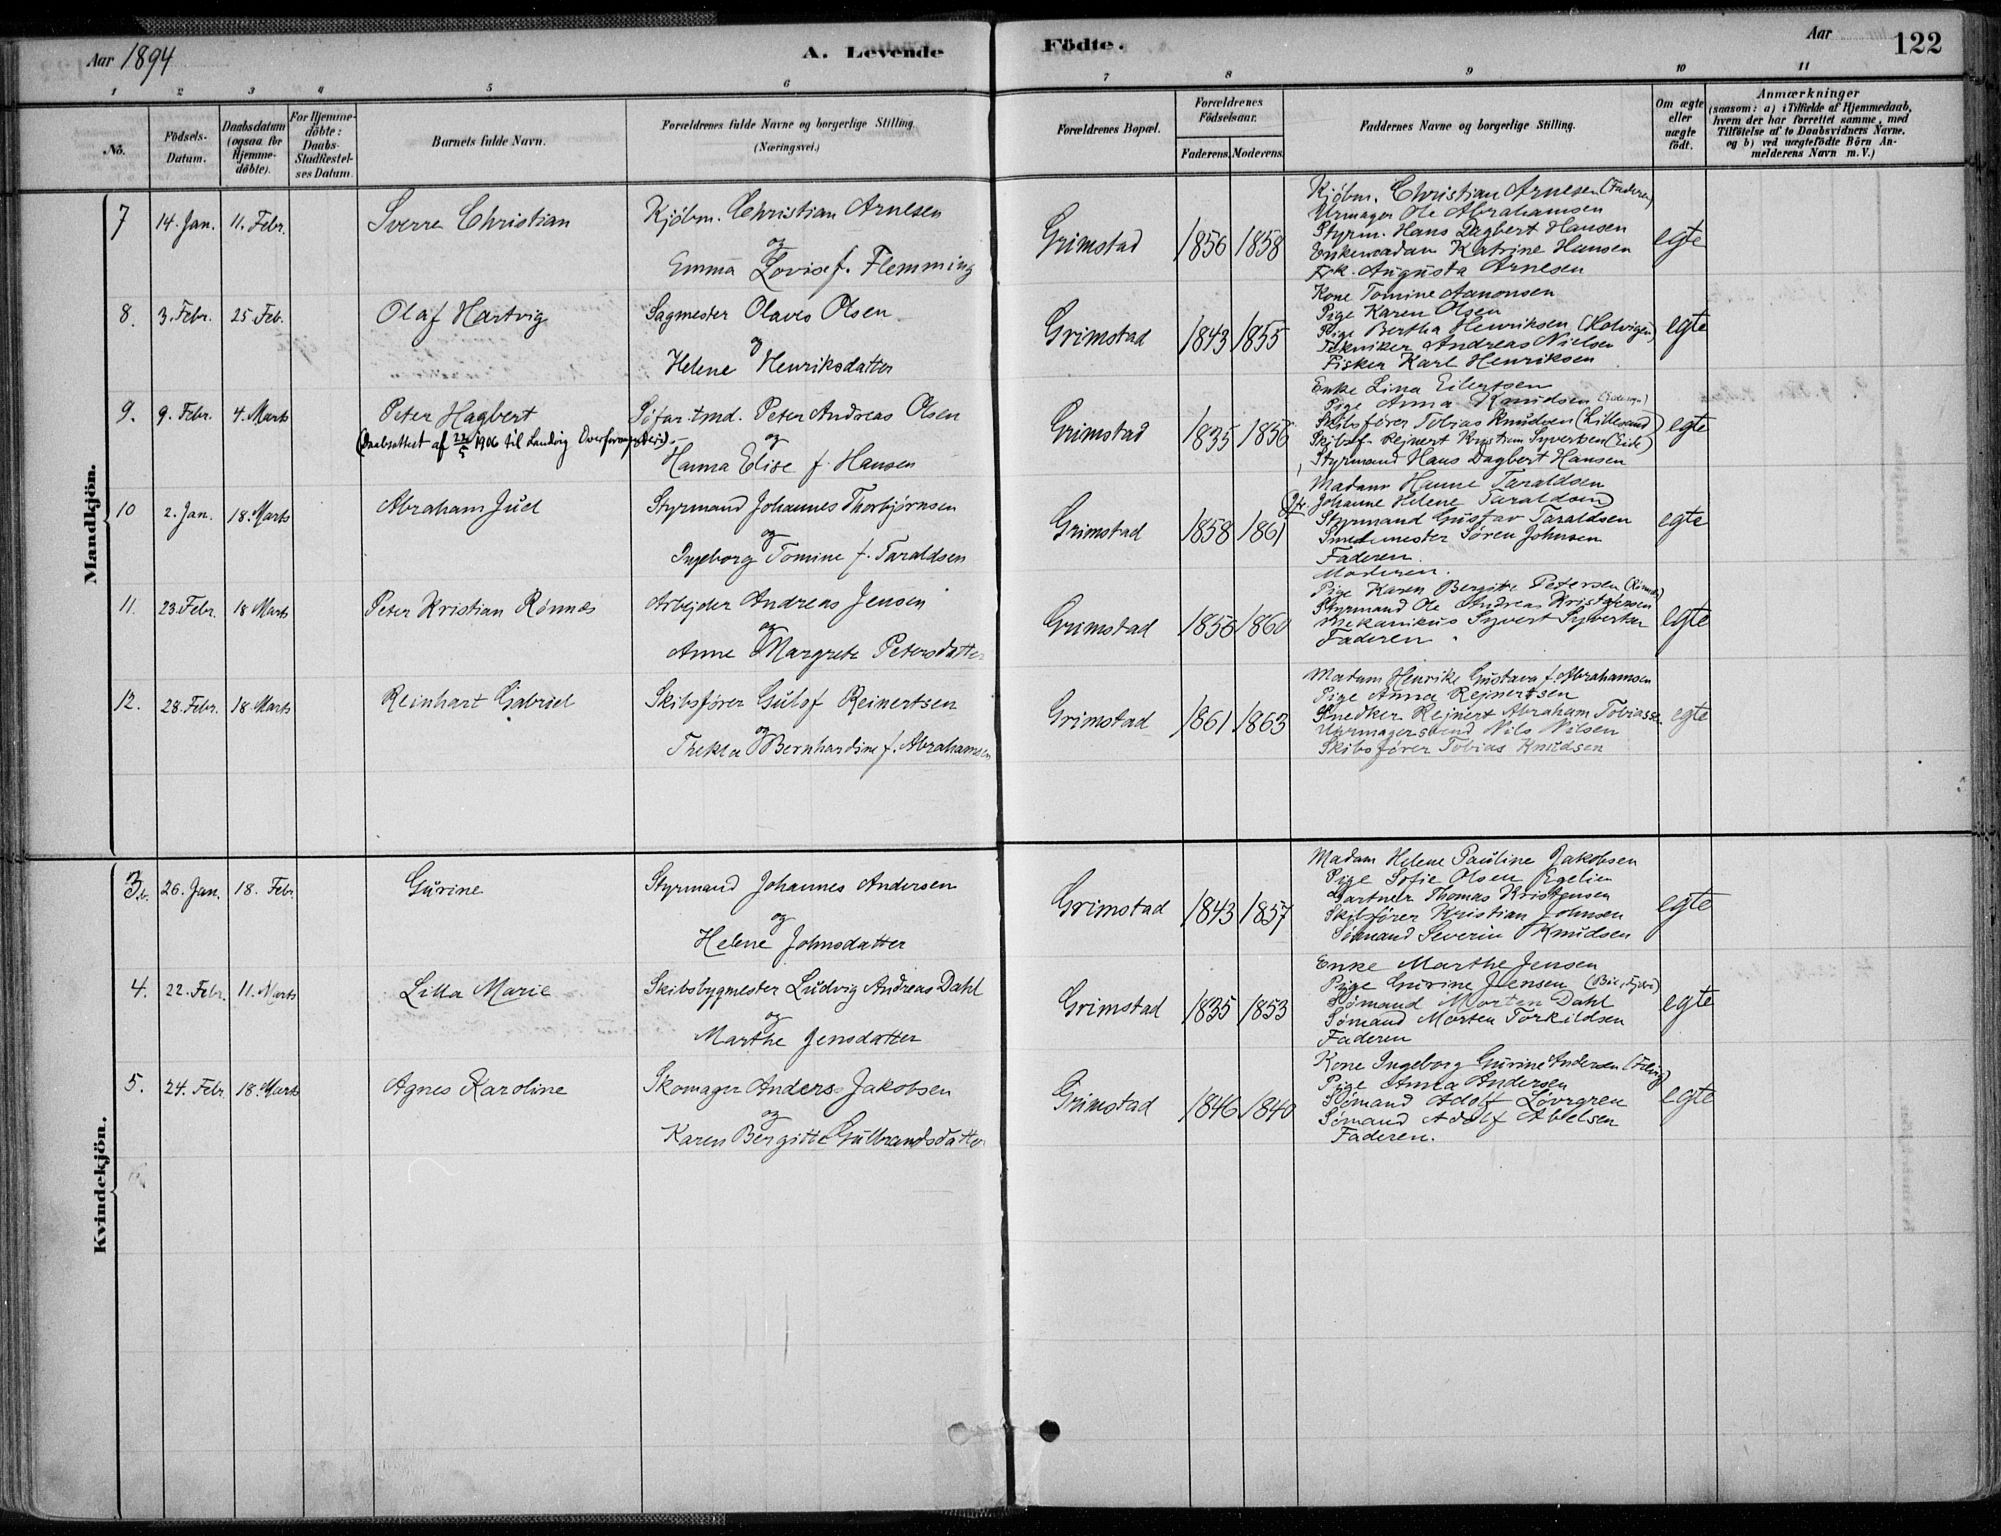 Aar 1894
A. Levende
Födte.
Aar
122
1 2 3 4 5 6 7 8 9 10 11
No.
Födsels-Datum.
Daabsdatum (ogsaa for Hjemmedöbte).
For Hjemmedöbte: Daabs-Stadfæstelses Datum.
Barnets fulde Navn.
Forældrenes fulde Navne og borgerlige Stilling. (Næringsvei.)
Forældrenes Bopæl.
Forældrenes Födselsaar.
Faderens. Moderens.
Faddernes Navne og borgerlige Stilling.
Om ægte eller uægte födt.
Anmærkninger
(saasom: a) i Tilfælde af Hjemmedaab, hvem der har forrettet samme, med Tilföielse af to Daabsvidners Navne, og b) ved uægtefödte Börn Anmelderens Navn m. V.)
Mandkjön.
7 14. Jan. 11. Febr. Sverre Christian
Kjöbm. Christian Arnesen
og
Emma Lovise f. Flemming
Grimstad 1856 1858
Kjöbm. Christian Arnesen (Faderen)
Urmager Ole Abrahamsen
Styrm. Hans Dagbert Hansen
Enkemadam Katrine Hansen
Frk. Augusta Arnesen
egte
8. 3. Febr. 25 Feb. Olaf Hartvig
Sagmester Olaves Olsen
og
Helene Henriksdatter
Grimstad 1843 1855
Kone Tomine Aanonsen
Pige Karen Olsen
Pige Bertha Henriksen (Holvigen)
Tekniker Andreas Nielsen
Fisker Karl Henriksen
egte
9. 9. Febr. 4. Marts Peter Hagbert
(Daabsattest af 22/5 1906 til Landvig Overformynderi).
Söfar.tmd. Peter Andreas Olsen
og
Hanna Elise f. Hansen
Grimstad 1835 1856
Enke Lina Eilertsen
Pige Anna Knudsen
Skibsförer Tobias Knudsen (Lillesand)
Skibsf. Rejnert Kristian Syversen (Eide)
Styrmand Hans Dagbert Hansen
egte
10 2. Jan. 18. Marts Abraham Juel
Styrmand Johannes Thorbjørnsen
og
Ingeborg Tomine f. Taraldsen
Grimstad 1858 1861
Madam Hanne Taraldsen
Johanne Helene Taraldsen
Styrmand Gustav Taraldsen
Smedemester Søren Johnsen
Faderen
egte
11. 23. Febr. 18 Marts Peter Kristian Rønnes
Arbejder Andreas Jensen
og
Anne Margrete Petersdatter
Grimstad 1856 1860
Moderen.
Pige Karen Bergitte Petersen (Rønnes)
Styrmand Ole Andreas Kristensen
Mekanikus Syvert Syvertsen
Faderen
egte
12. 28. Febr. 18 Marts Reinhart Gabriel
Skibsfører Gulof Reinertsen
og
Thekla Bernhardine f. Abrahamsen
Grimstad 1861 1863
Madam Henrike Gustava f. Abrahamsen
Pige Anna Rejnertsen
Snedker Rejnert Abraham Tobiassen
Uhrmagersvend Nils Nilsen
Skibsfører Tobias Knudsen
egte
Kvindekjön.
3. 26. Jan. 18. Febr. Gurine
Styrmand Johannes Andersen
og
Helene Johnsdatter
Grimstad 1843 1857
Madam Helene Pauline Jakobsen
Pige Sofie Olsen Egelien
Gartner Thomas Kristensen
Skibsfører Kristian Johnsen
Sømand Severin Knudsen
egte
4. 22. Febr. 11. Marts Lilla Marie
Skibsbygmester Ludvig Andreas Dahl
og
Marthe Jensdatter
Grimstad 1835 1853
Enke Marthe Jensen
Pige Gurine Jensen
Sømand Morten Dahl
Sømand Morten Torkildsen
Faderen
egte
5. 24. Febr. 18. Marts Agnes Karoline
Skomager Anders Jakobsen
og
Karen Bergitte Gulbrandsdatter
Grimstad 1846 1840
Kone Ingeborg Gurine Andersen
Pige Anna Andersen
Sømand Adolf Løvrgren
Sømand Adolf Abelsen
Faderen.
egte